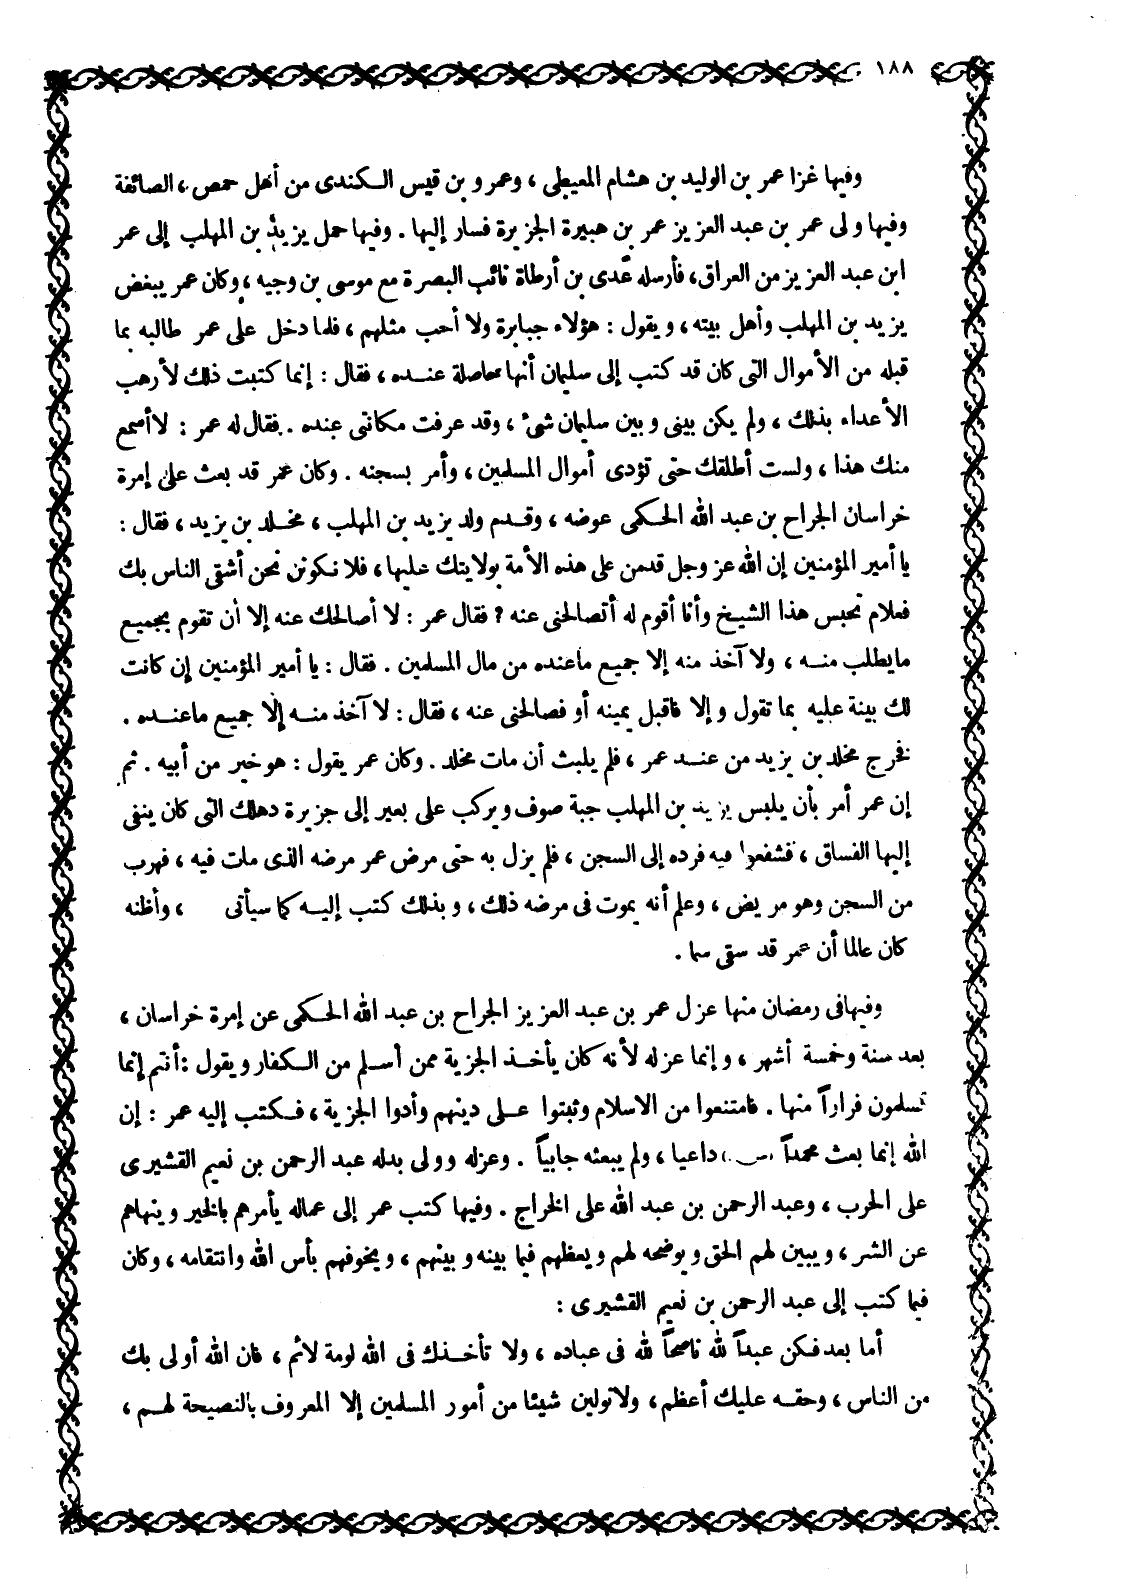 ١٨٨
وفيها غزا عمر بن الوليد بن هشام المعيطى ، وعمرو بن قيس الكندى من أهل حمص ، الصائفة
وفيها ولى عمر بن عبد العزيز عمر بن هبيرة الجزيرة فسار إليها . وفيها حمل يزيد بن المهلب إلى عمر
ابن عبد العزيز من العراق، فأرسله عدى بن أرطاة نائب البصرة مع موسى بن وجيه ، وكان عمر يبغض
يزيد بن المهلب وأهل بيته ، ويقول : هؤلاء جبابرة ولا أحب مثلهم ، فلما دخل على عمر طالبه بما
قبله من الأموال التى كان قد كتب إلى سليمان أنها حاصلة عنده ، فقال : إنما كتبت ذلك لأرهب
الأعداء بذلك ، ولم يكن بينى وبين سليمان شئ ، وقد عرفت مكانتى عنده . فقال له عمر : لا أسمع
منك هذا ، ولست أطلقك حتى تؤدى أموال المسلمين ، وأمر بسجنه . وكان عمر قد بعث على إمرة
خراسان الجراح بن عبد الله الحكمى عوضه ، وقدم ولد يزيد بن المهلب ، مخلد بن يزيد ، فقال :
يا أمير المؤمنين إن الله عز وجل قدمن على هذه الأمة بولايتك عليها، فلا نكونن نحن أشقى الناس بك
فعلام تحبس هذا الشيخ وأنا أقوم له أتصالحنى عنه ؟ فقال عمر : لا أصالحك عنه إلا أن تقوم بجميع
ما يطلب منه ، ولا آخذ منه إلا جميع ما عنده من مال المسلمين . فقال : يا أمير المؤمنين إن كانت
لك بينة عليه بما تقول وإلا فاقبل يمينه أو فصالحنى عنه ، فقال : لا آخذ منه إلا جميع ما عنده .
فخرج مخلد بن يزيد من عند عمر ، فلم يلبث أن مات مخلد . وكان عمر يقول : هو خير من أبيه . ثم
إن عمر أمر بأن يلبس يزيد بن المهلب جبة صوف ويركب على بعير إلى جزيرة دهلك التى كان ينفى
إليها الفساق ، فشفعوا فيه فرده إلى السجن ، فلم يزل به حتى مرض عمر مرضه الذى مات فيه ، فهرب
من السجن وهو مريض ، وعلم أنه يموت فى مرضه ذلك ، وبذلك كتب إليه كما سيأتى ، وأظنه
كان عالما أن عمر قد سقى سما .
وفيها فى رمضان منها عزل عمر بن عبد العزيز الجراح بن عبد الله الحكمى عن إمرة خراسان ،
بعد سنة وخمسة أشهر ، وإنما عزله لأنه كان يأخذ الجزية ممن أسلم من الكفار ويقول : أنتم إنما
تسلمون فراراً منها . فامتنعوا من الاسلام وثبتوا على دينهم وأدوا الجزية ، فكتب إليه عمر : إن
الله إنما بعث محمداً داعيا ، ولم يبعثه جابياً . وعزله وولى بدله عبد الرحمن بن نعيم القشيرى
على الحرب ، وعبد الرحمن بن عبد الله على الخراج . وفيها كتب عمر إلى عماله يأمرهم بالخير وينهاهم
عن الشر ، ويبين لهم الحق ويوضحه لهم ويعظهم فيما بينه وبينهم ، ويخوفهم بأس الله وانتقامه ، وكان
فيما كتب إلى عبد الرحمن بن نعيم القشيرى :
أما بعد فكن عبداً لله ناصحاً لله فى عباده ، ولا تأخذك فى الله لومة لائم ، فان الله أولى بك
من الناس ، وحقه عليك أعظم ، ولا تولين شيئا من أمور المسلمين إلا المعروف بالنصيحة لهم ،